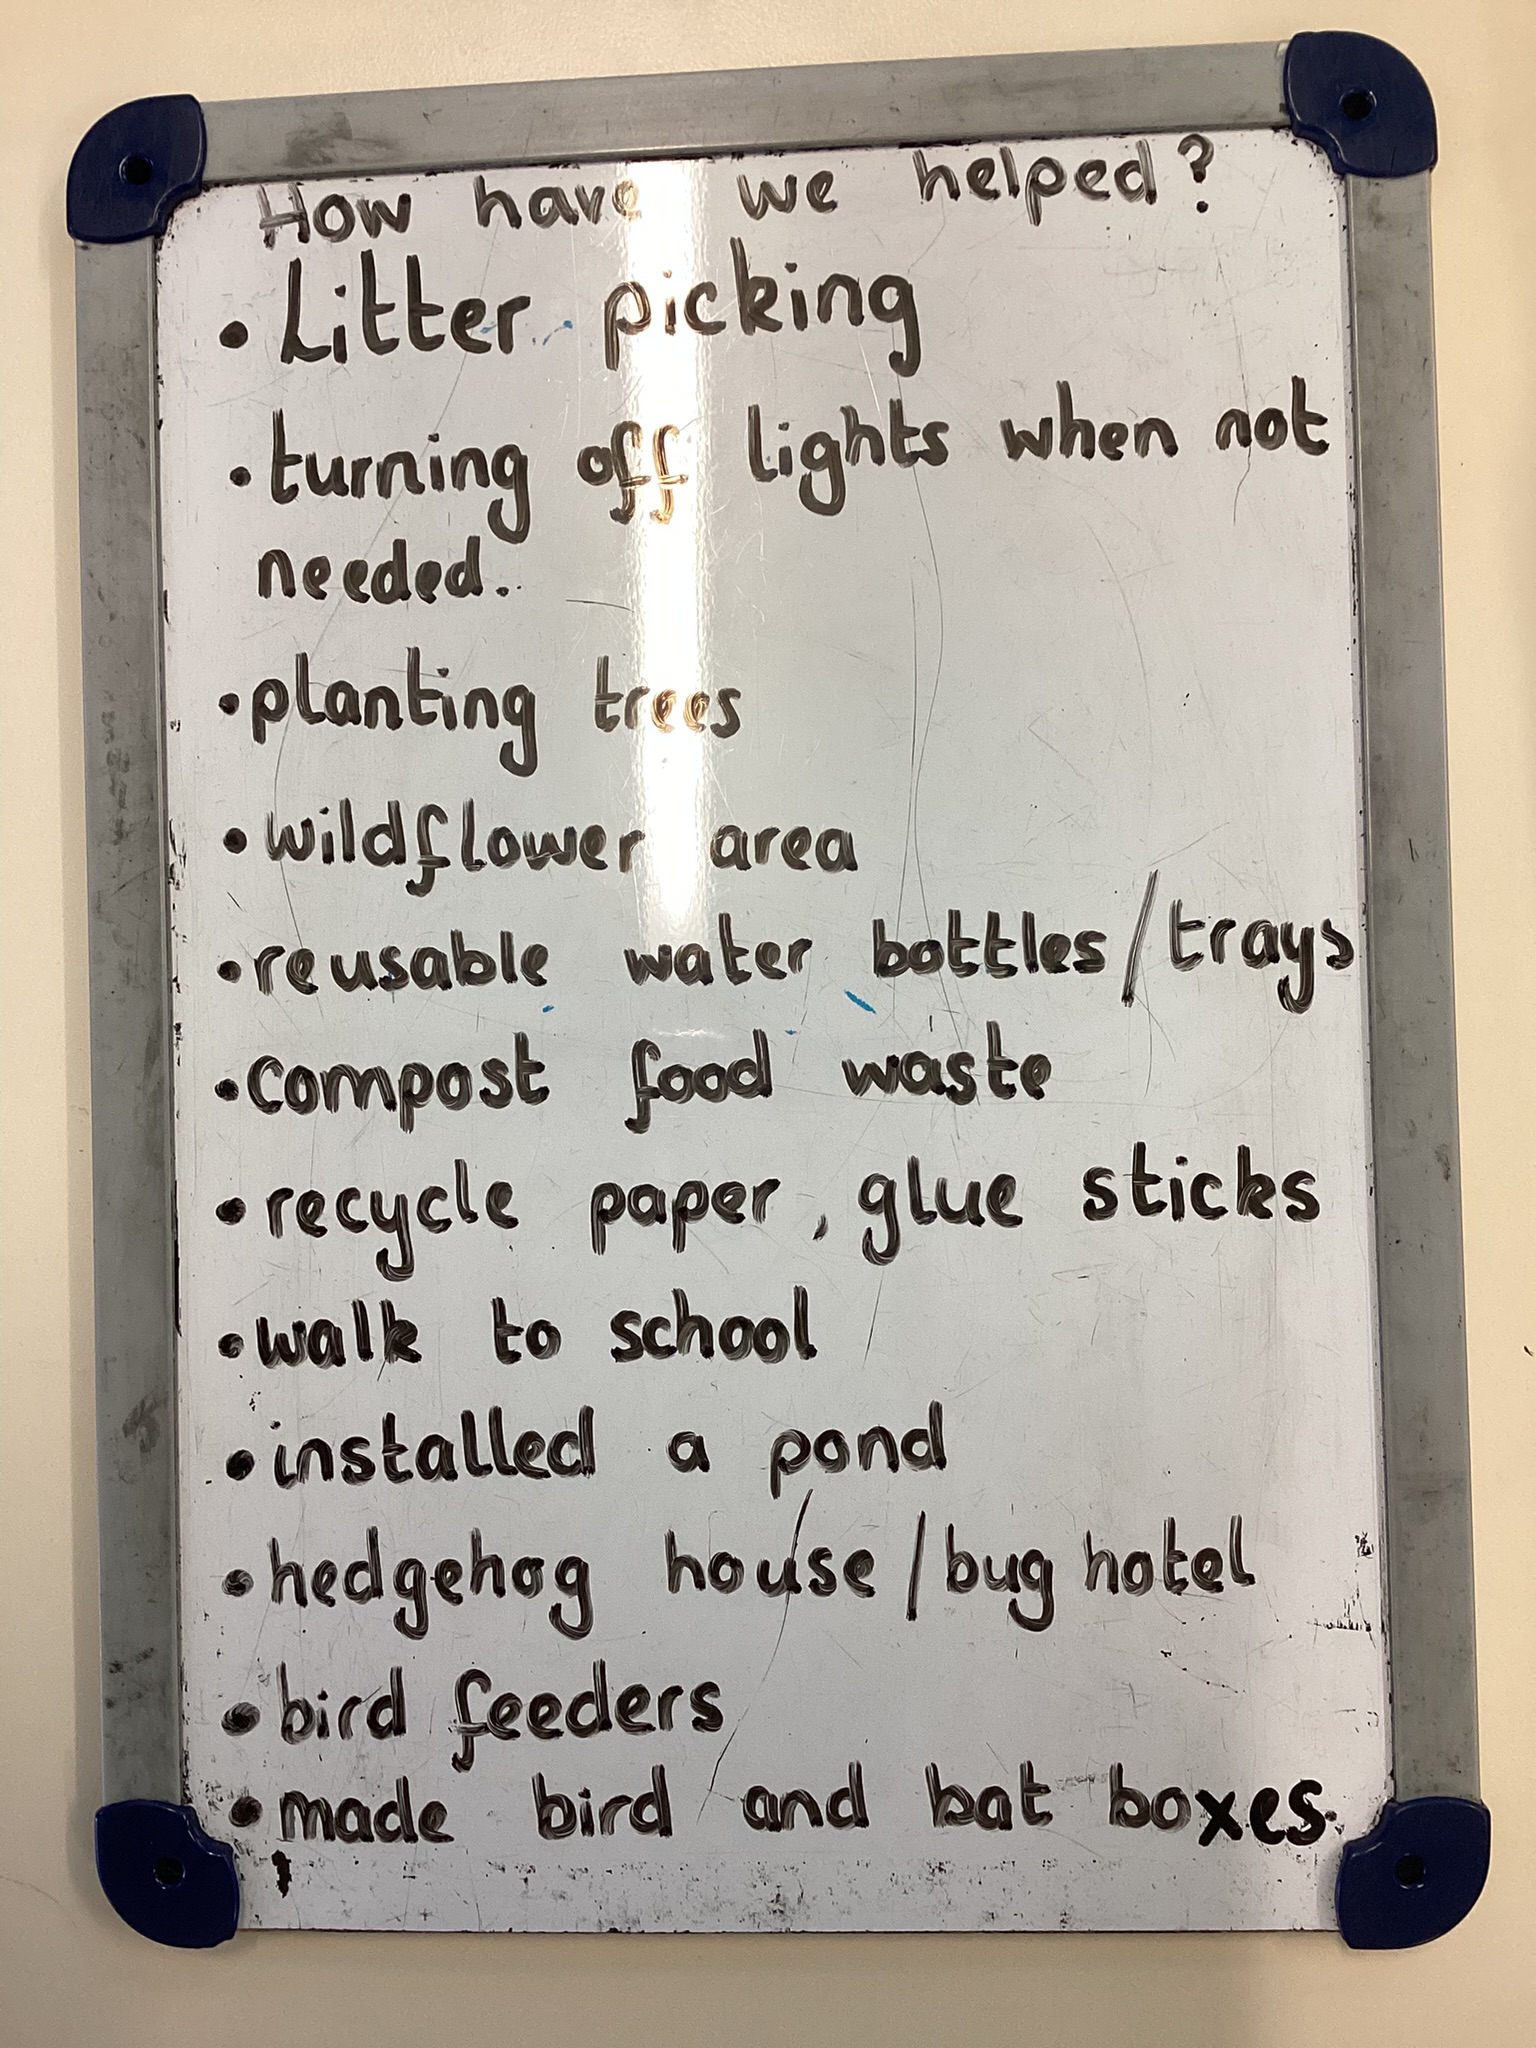 How have we helped?
• Litter picking
• turning off lights when not
needed.
• planting trees
• wildflower area
• reusable water bottles/trays
• compost food waste
• recycle paper, glue sticks
• walk to school
• installed a pond
• hedgehog house/bug hotel
• bird feeders
• made bird and bat boxes.